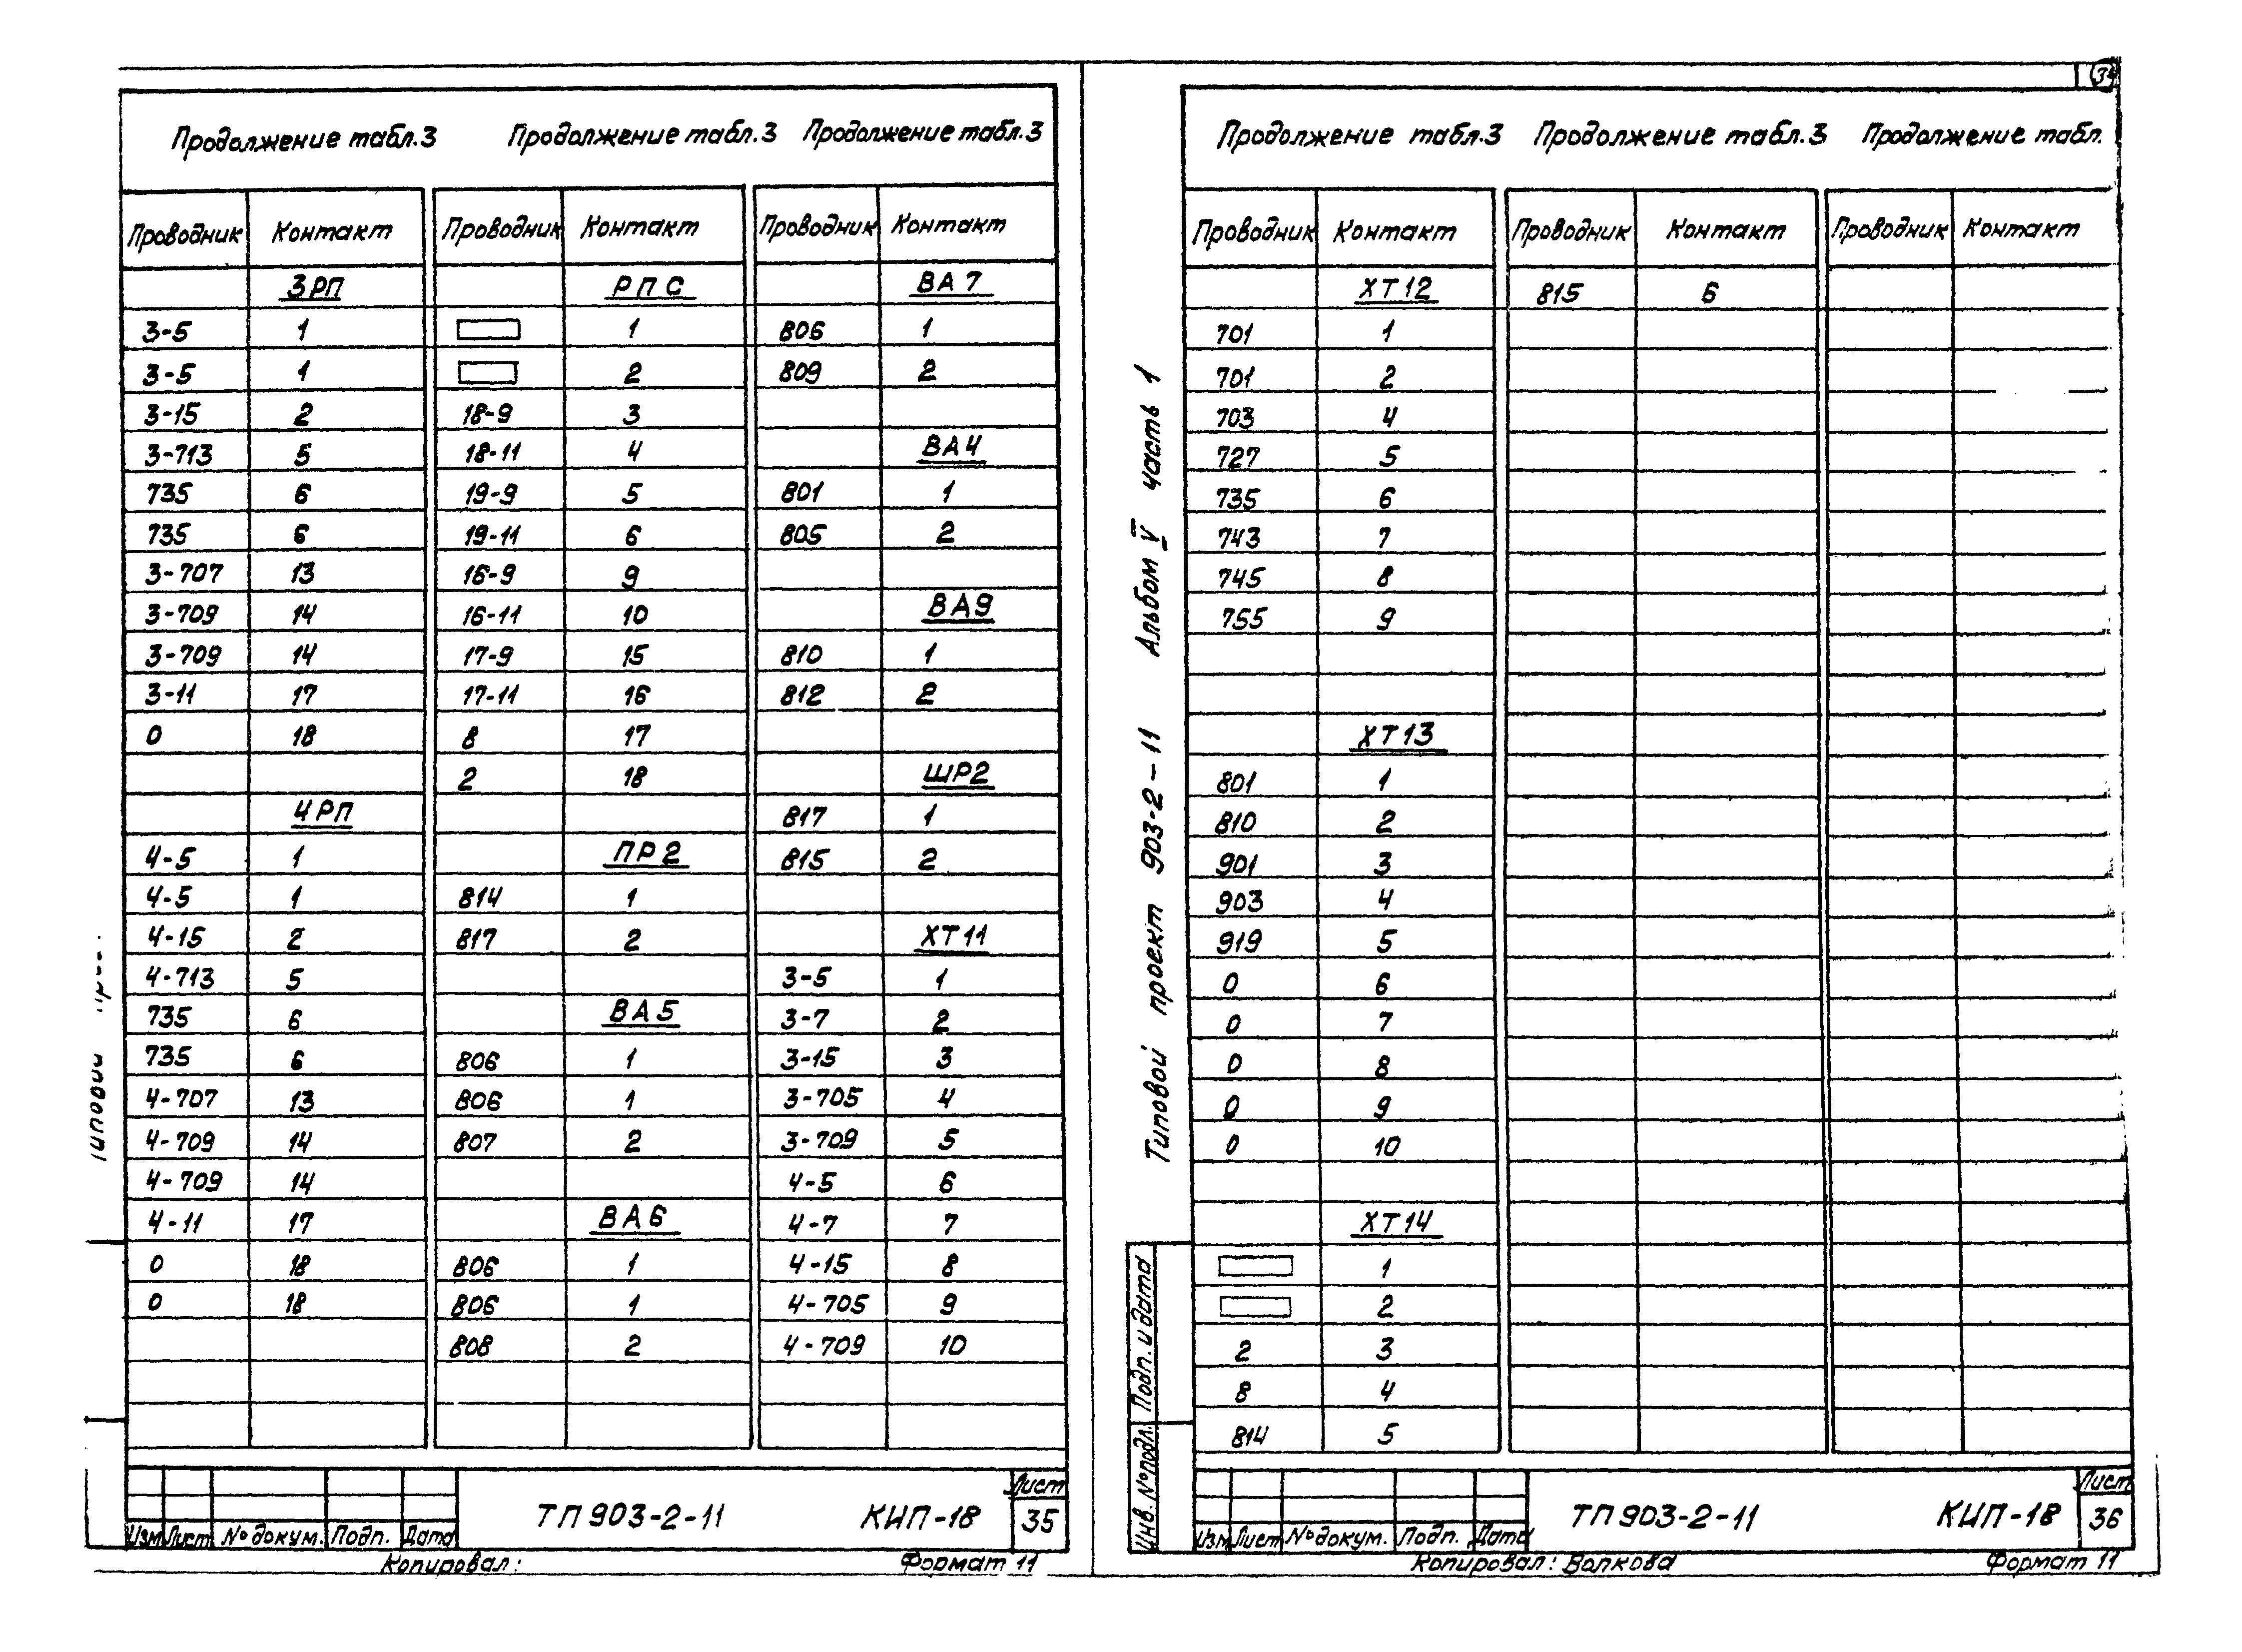 Продолжение табл.3 Продолжение табл.3 Продолжение табл.3
Проводник Контакт Проводник Контакт Проводник Контакт
3РП РПС ВА7
3-5 1 1 806 1
3-5 1 2 809 2
3-15 2 18-9 3
3-713 5 18-11 4 ВА4
735 6 19-9 5 801 1
735 6 19-11 6 805 2
3-707 13 16-9 9
3-709 14 16-11 10 ВА9
3-709 14 17-9 15 810 1
3-11 17 17-11 16 812 2
0 18 8 17
2 18 ШР2
4РП 817 1
4-5 1 ПР2 815 2
4-5 1 814 1
4-15 2 817 2 ХТ11
4-713 5 3-5 1
735 6 ВА5 3-7 2
735 6 806 1 3-15 3
4-707 13 806 1 3-705 4
4-709 14 807 2 3-709 5
4-709 14 4-5 6
4-11 17 ВА6 4-7 7
0 18 806 1 4-15 8
0 18 806 1 4-705 9
808 2 4-709 10
Изм Лист № докум. Подп. Дата
ТП 903-2-11 КИП-18
Лист
35
Копировал: Формат 11
Продолжение табл.3 Продолжение табл.3 Продолжение табл.
Проводник Контакт Проводник Контакт Проводник Контакт
ХТ12 815 6
701 1
701 2
703 4
727 5
735 6
743 7
745 8
755 9
ХТ13
801 1
810 2
901 3
903 4
919 5
0 6
0 7
0 8
0 9
0 10
ХТ14
1
2
2 3
8 4
814 5
Типовой проект 903-2-11 Альбом V часть 1
Инв. № подл. Подп. и дата
Изм Лист № докум. Подп. Дата
ТП 903-2-11 КИП-18
Лист
36
Копировал: Волкова Формат 11